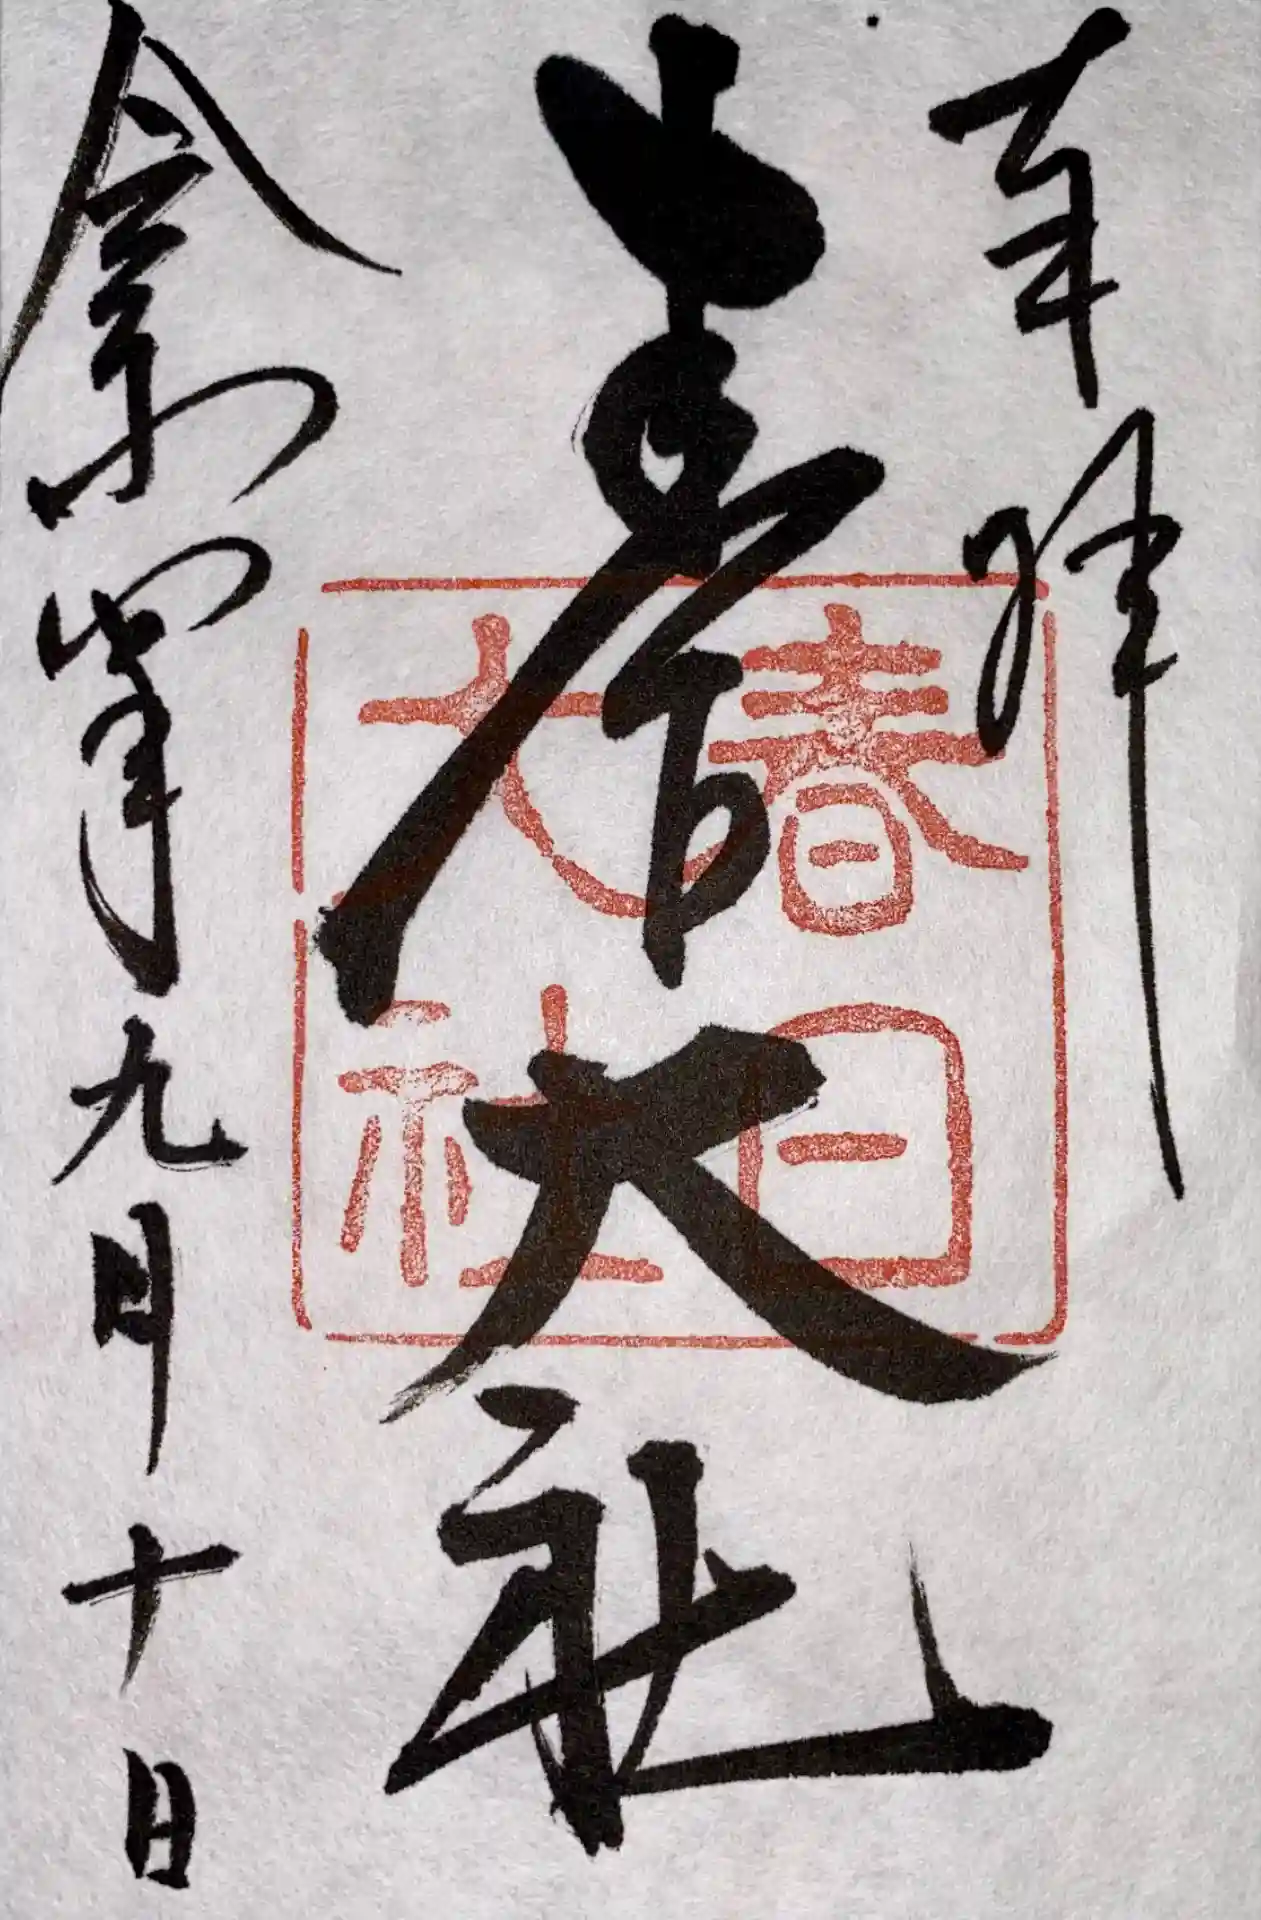 奉拝
春日大社
令和四年九月十日
春日
大社